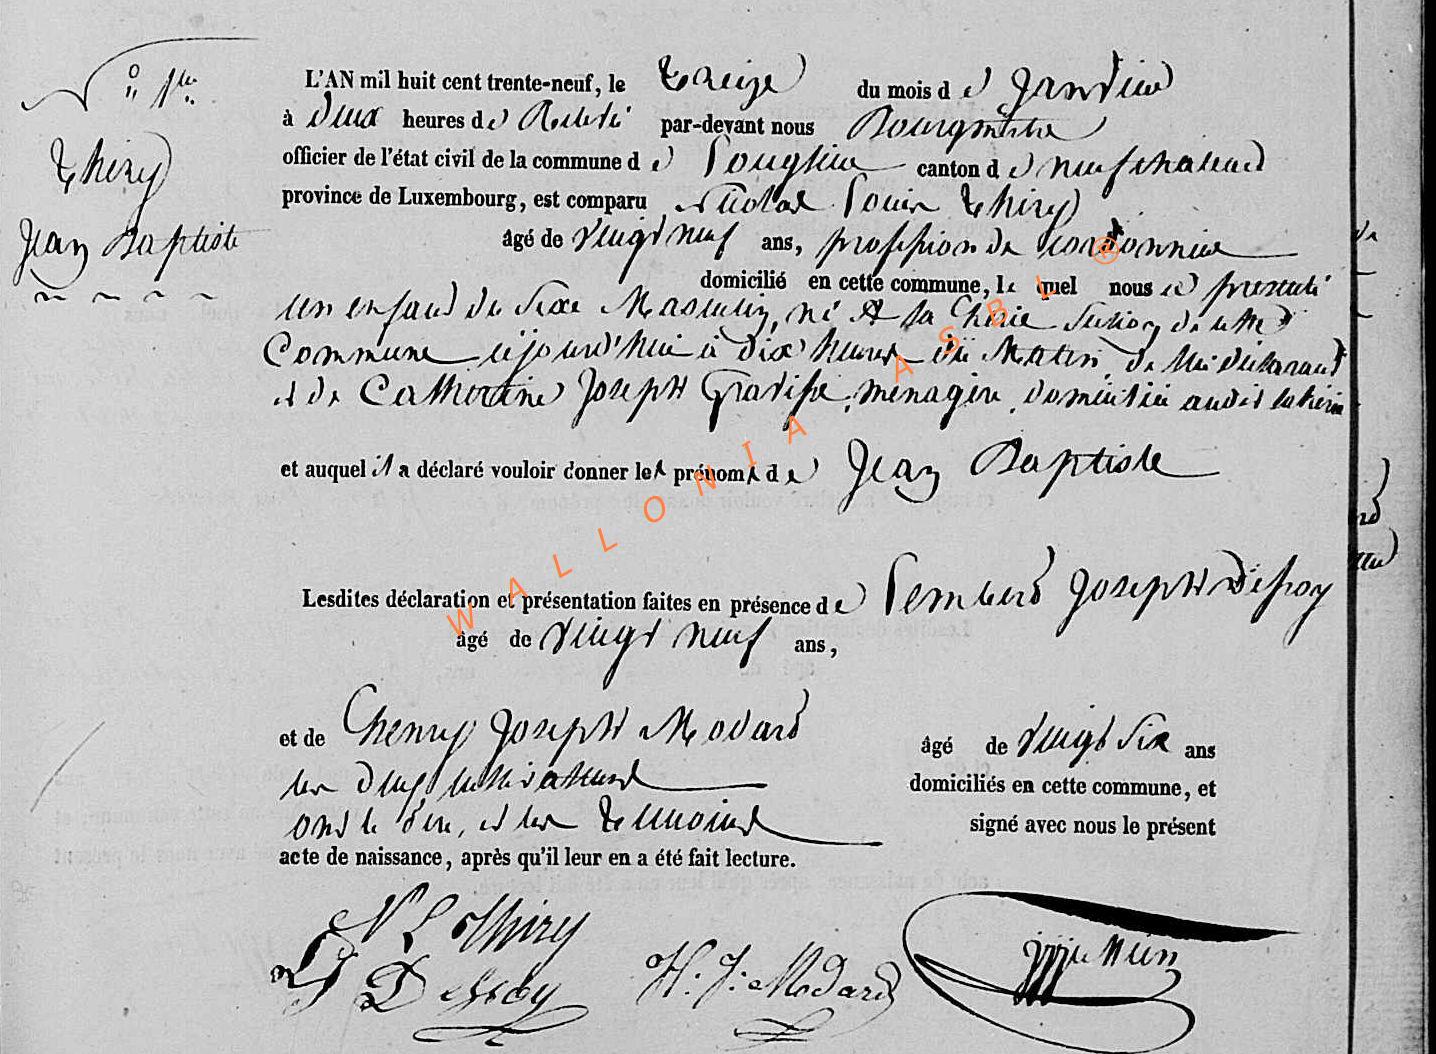 Thiry
Jean Baptiste
L'AN mil huit cent trente-neuf, le treize du mois de Janvier
à deux heures de Relevée par-devant nous Bourgmestre
officier de l'état civil de la commune de Longlier canton de neufchateau
province de Luxembourg, est comparu Nicolas Louis Thiry
âgé de vingt neuf ans, profession de cordonnier
domicilié en cette commune, lequel nous a présenté
un enfant du sexe Masculin, né A la Cherie Section de cette
Commune aujourd'hui à dix heures du Matin, de lui déclarant
et de Catherine Joseph Gravisse, ménagère, domiciliée audit
et auquel il a déclaré vouloir donner les prénoms de Jean Baptiste
Lesdites déclaration et présentation faites en présence de Lembert Joseph Dessoy
âgé de vingt neuf ans,
et de Chenry Joseph Modard âgé de vingt six ans
les deux cultivateurs domiciliés en cette commune, et
ont le Père, et les Témoins signé avec nous le présent
acte de naissance, après qu'il leur en a été fait lecture.
N L Thiry
L J Dessoy
H. J. Modard
WALLONIA ASBL @